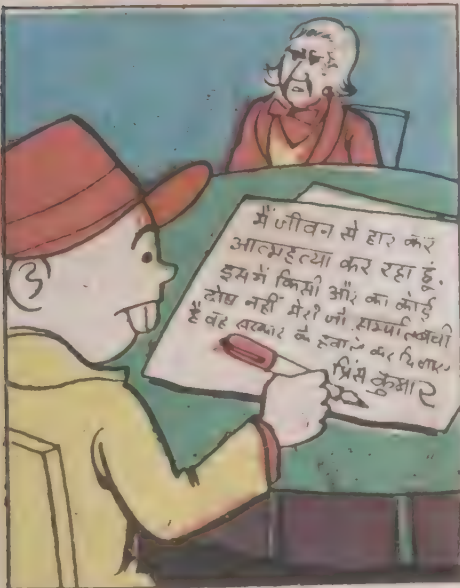 मैं जीवन से हार कर
आत्महत्या कर रहा हूं.
इसमें किसी और का कोई
दोष नहीं मेरी जो सम्पत्ति बची
है वह सरकार के हवाले कर दी जाए.
प्रिंस कुमार